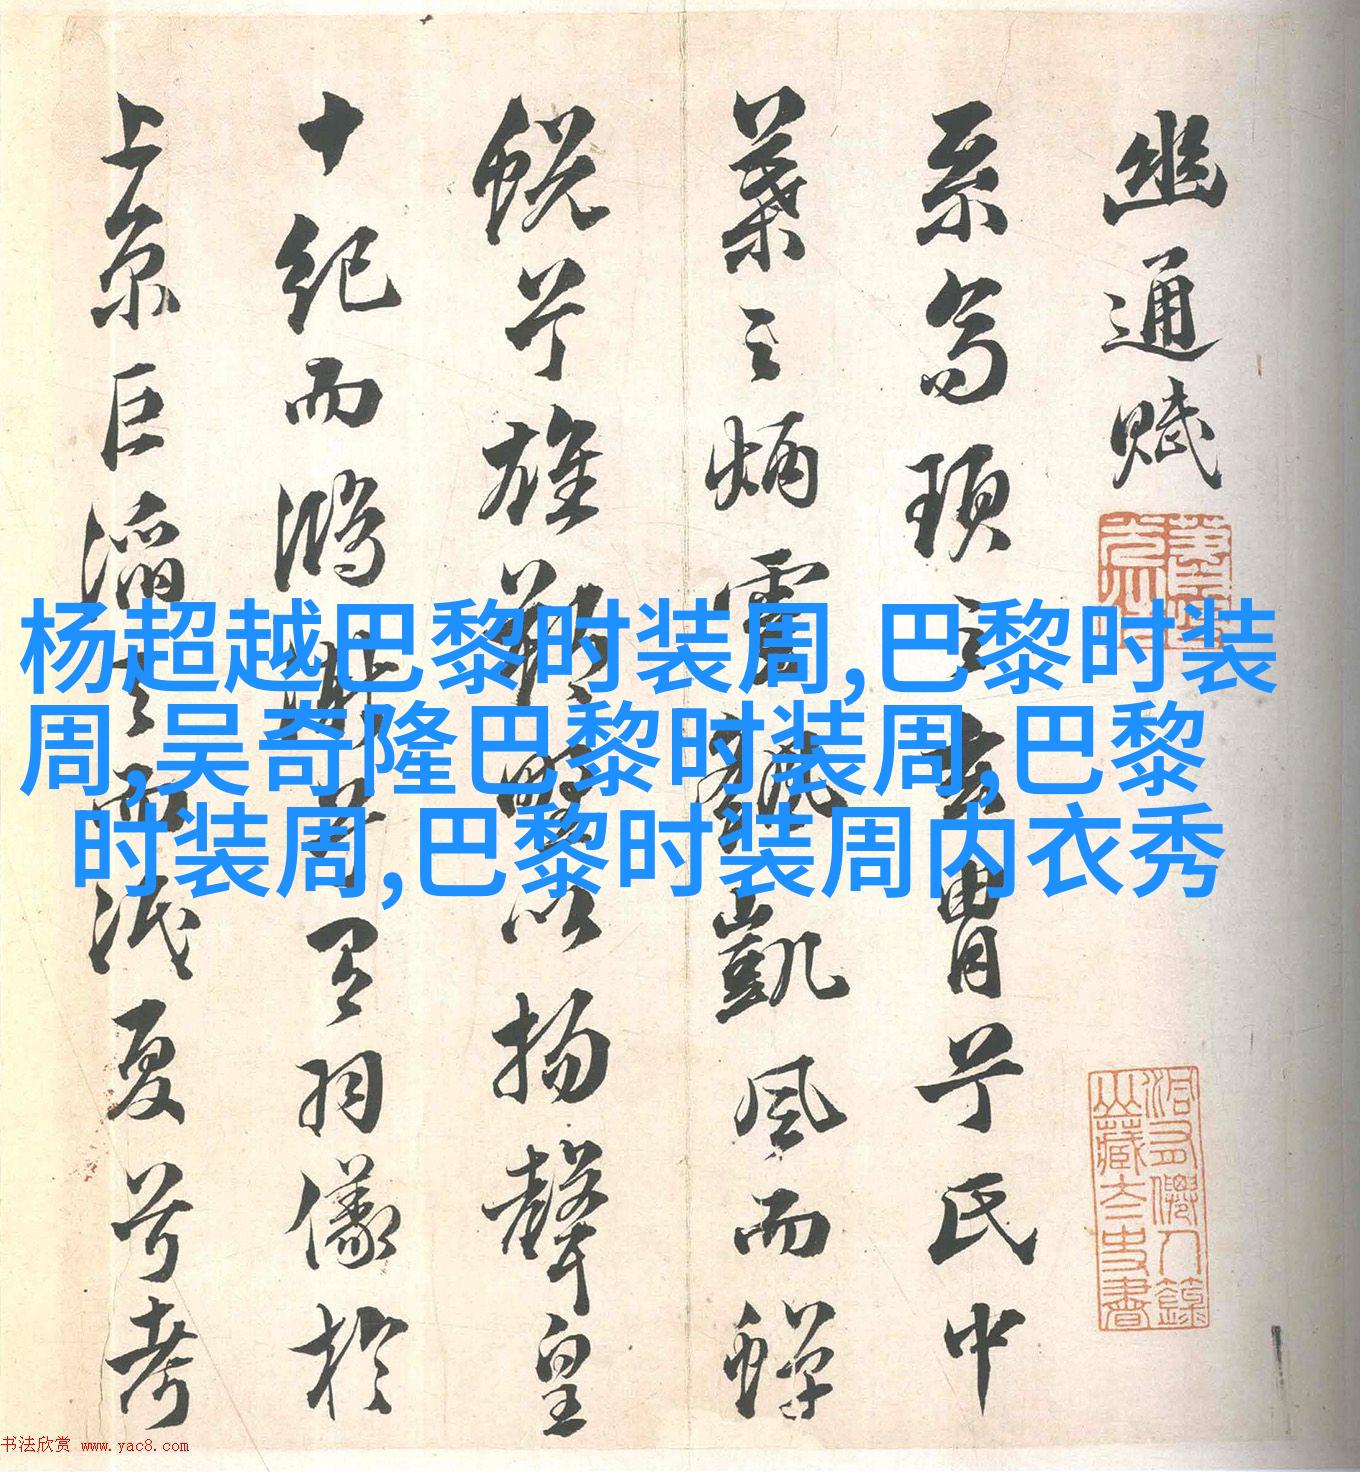 幽通賦
系高頊之玄胄兮氏中
葉之炳靈繇凱風而蟬
蛻兮雄朔野以揚聲皇
十紀而鴻漸兮有羽儀於
上京巨滔天而泯夏兮考
杨超越巴黎时装周,巴黎时装
周,吴奇隆巴黎时装周,巴黎
时装周,巴黎时装周内衣秀
书法欣赏 www.yac8.com